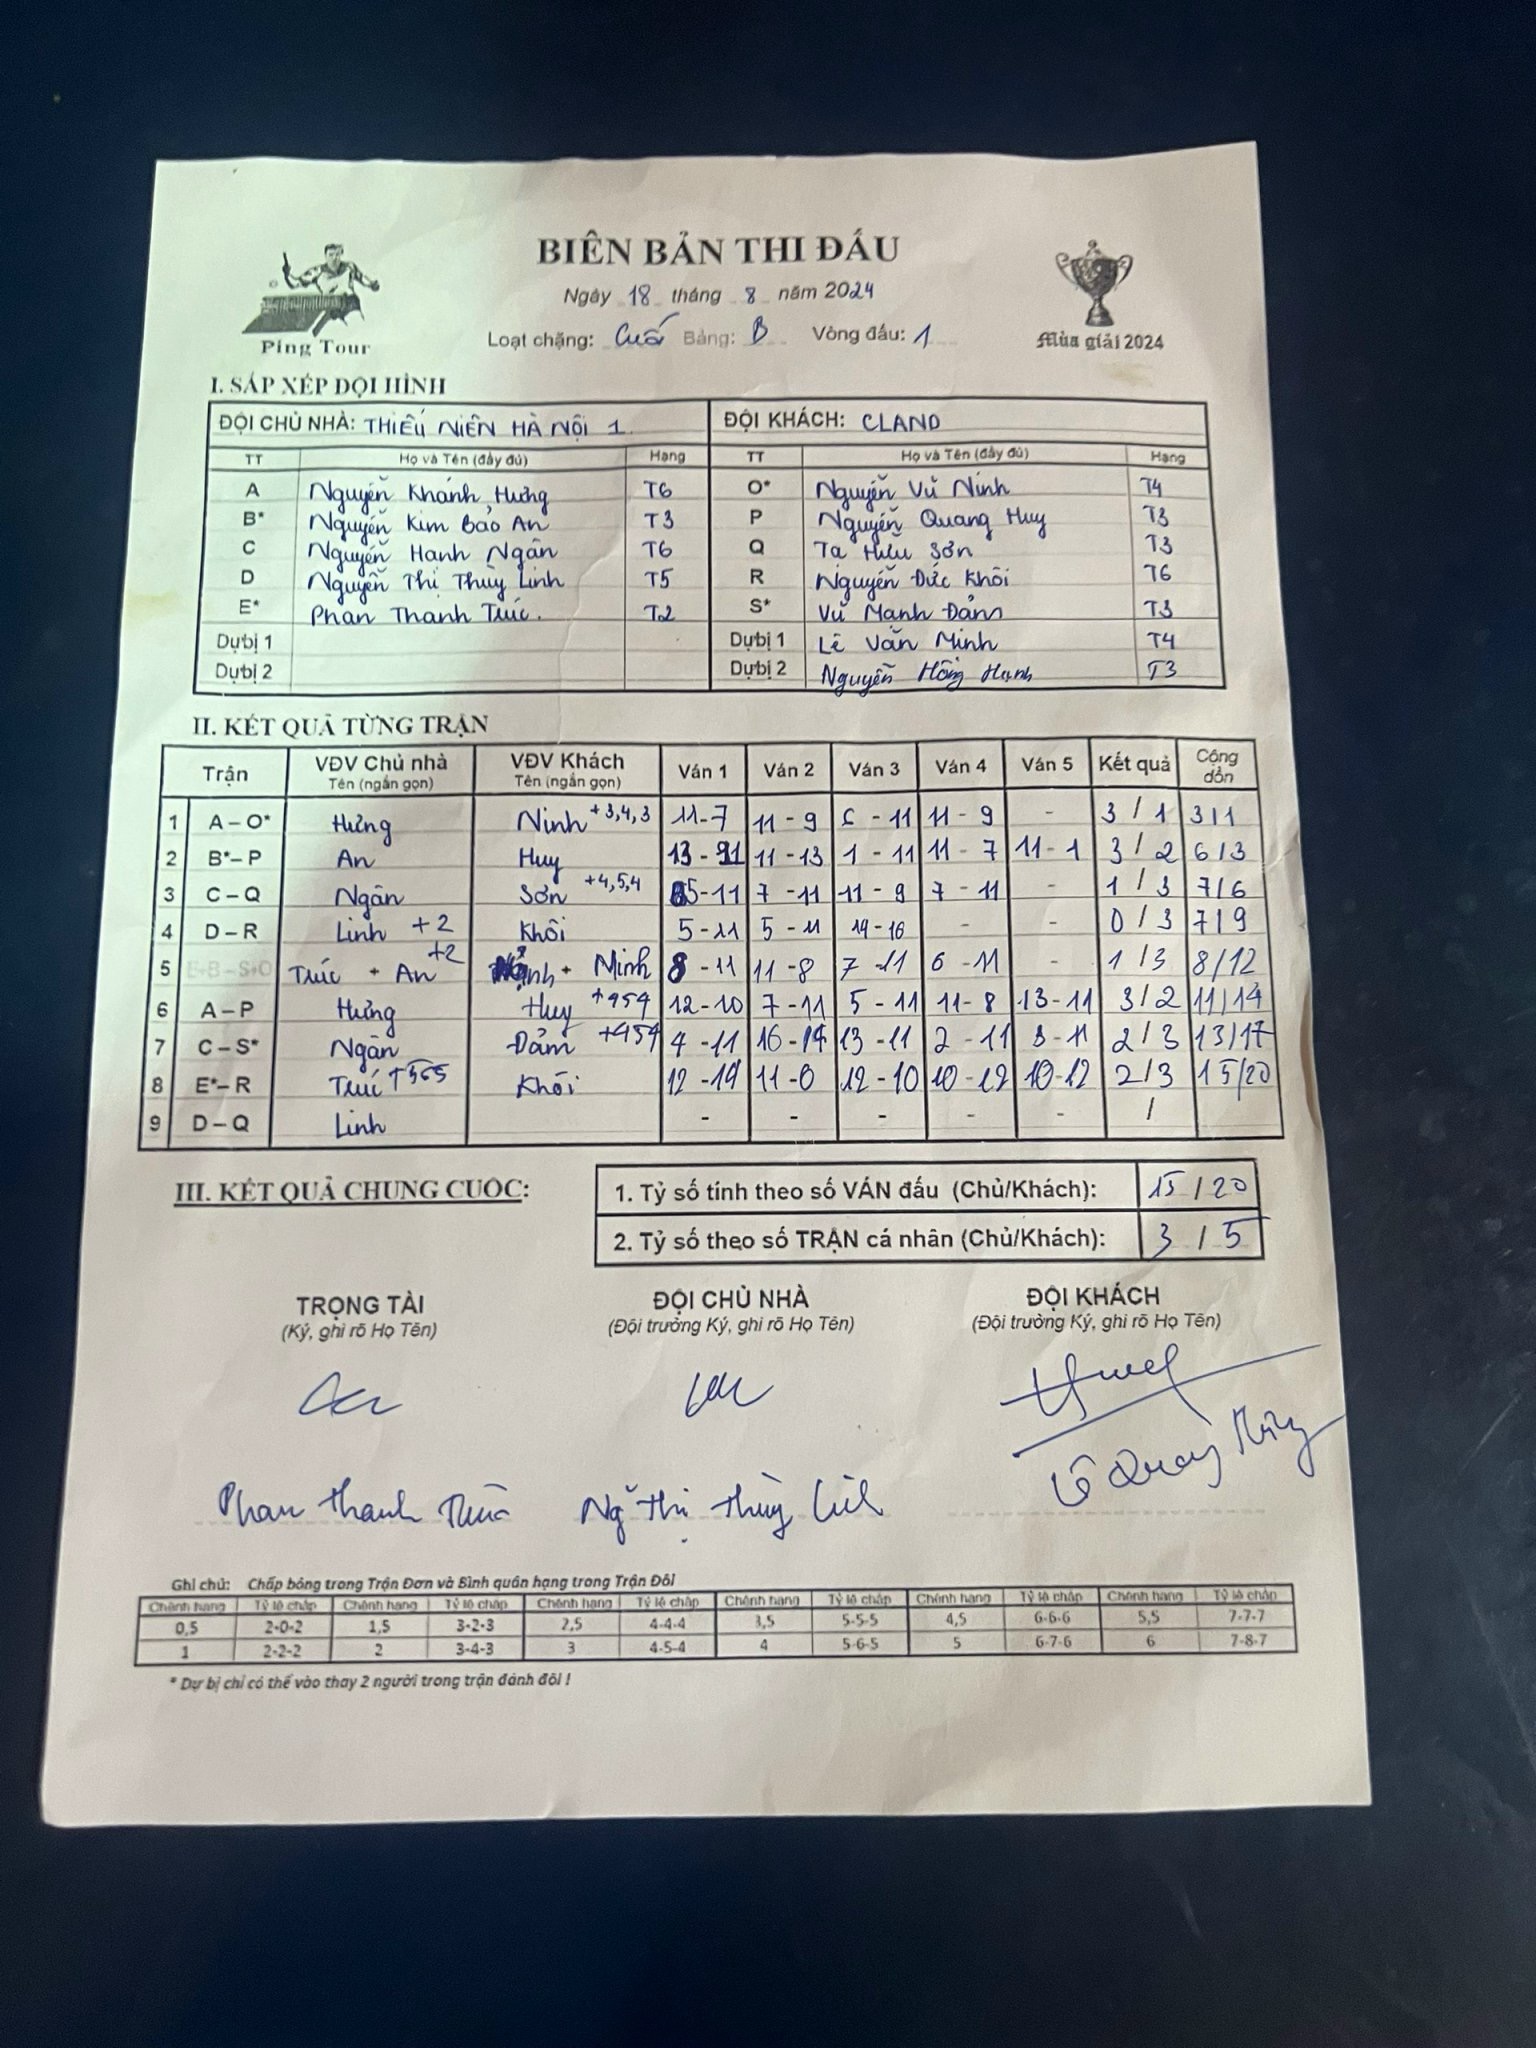 BIÊN BẢN THI ĐẤU
Ngày 18 tháng 8 năm 2024
Ping Tour
Loạt chặng: Cuối Bảng: B Vòng đấu: 1
Mùa giải 2024
I. SẮP XẾP ĐỘI HÌNH
ĐỘI CHỦ NHÀ: THIẾU NIÊN HÀ NỘI 1 ĐỘI KHÁCH: CLAND
TT Họ và Tên (đầy đủ) Hạng TT Họ và Tên (đầy đủ) Hạng
A Nguyễn Khánh Hưng T6 O* Nguyễn Vũ Ninh T4
B* Nguyễn Kim Bảo An T3 P Nguyễn Quang Huy T3
C Nguyễn Hạnh Ngân T6 Q Tạ Hiếu Sơn T3
D Nguyễn Thị Thùy Linh T5 R Nguyễn Đức Khôi T6
E* Phan Thanh Trúc. T2 S* Vũ Mạnh Đảm T3
Dự bị 1 Dự bị 1 Lê Văn Minh T4
Dự bị 2 Dự bị 2 Nguyễn Hồng Hạnh T3
II. KẾT QUẢ TỪNG TRẬN
Trận VĐV Chủ nhà Tên (ngắn gọn) VĐV Khách Tên (ngắn gọn) Ván 1 Ván 2 Ván 3 Ván 4 Ván 5 Kết quả Cộng dồn
1 A – O* Hưng Ninh +3,4,3 11-7 11-9 6-11 11-9 - 3/1 3/1
2 B*– P An Huy 13-11 11-13 1-11 11-7 11-1 3/2 6/3
3 C – Q Ngân Sơn +4,5,4 5-11 7-11 11-9 7-11 - 1/3 7/6
4 D – R Linh +2 Khôi 5-11 5-11 14-16 - - 0/3 7/9
5 E+B – S+O Trúc + An +2 + Minh 8-11 11-8 7-11 6-11 - 1/3 8/12
6 A – P Hưng Huy +454 12-10 7-11 5-11 11-8 13-11 3/2 11/14
7 C – S* Ngân Đảm +454 4-11 16-14 13-11 2-11 8-11 2/3 13/17
8 E*– R Trúc +565 Khôi 12-14 11-0 12-10 10-12 10-12 2/3 15/20
9 D – Q Linh - - - - - /
III. KẾT QUẢ CHUNG CUỘC:
1. Tỷ số tính theo số VÁN đấu (Chủ/Khách): 15 / 20
2. Tỷ số theo số TRẬN cá nhân (Chủ/Khách): 3 / 5
TRỌNG TÀI ĐỘI CHỦ NHÀ ĐỘI KHÁCH
(Ký, ghi rõ Họ Tên) (Đội trưởng Ký, ghi rõ Họ Tên) (Đội trưởng Ký, ghi rõ Họ Tên)
Phan Thanh Trúc Ng Thị Thùy Linh Lê Quang
Ghi chú: Chấp bóng trong Trận Đơn và Bình quân hạng trong Trận Đôi
Chênh hạng Tỷ lệ chấp Chênh hạng Tỷ lệ chấp Chênh hạng Tỷ lệ chấp Chênh hạng Tỷ lệ chấp Chênh hạng Tỷ lệ chấp Chênh hạng Tỷ lệ chấp
0,5 2-0-2 1,5 3-2-3 2,5 4-4-4 3,5 5-5-5 4,5 6-6-6 5,5 7-7-7
1 2-2-2 2 3-4-3 3 4-5-4 4 5-6-5 5 6-7-6 6 7-8-7
* Dự bị chỉ có thể vào thay 2 người trong trận đánh đôi !